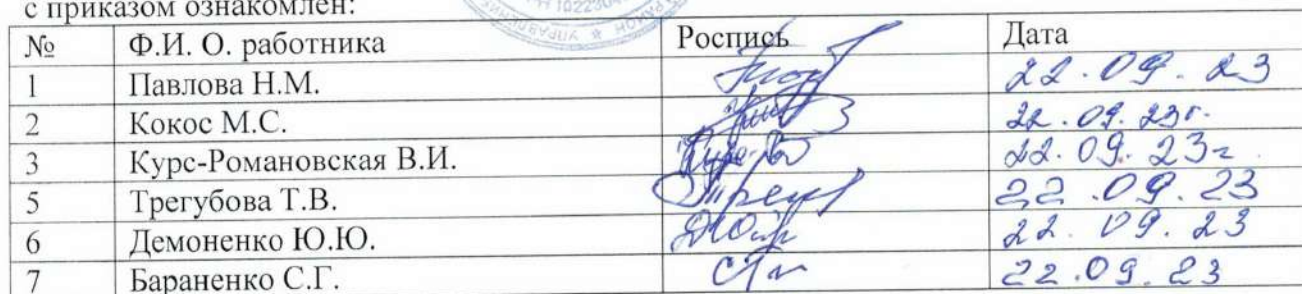 с приказом ознакомлен:
№ Ф.И. О. работника Роспись Дата
1 Павлова Н.М. 22.09.23
2 Кокос М.С. 22.09.23г.
3 Курс-Романовская В.И. 22.09.23г.
5 Трегубова Т.В. 22.09.23
6 Демоненко Ю.Ю. 22.09.23
7 Бараненко С.Г. 22.09.23